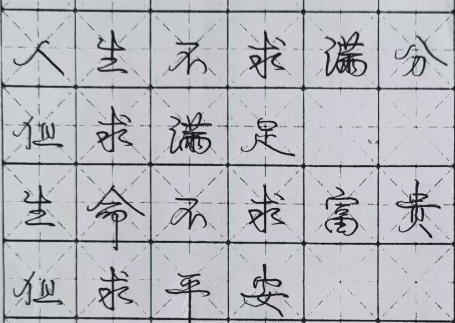 人生不求满分
但求满足
生命不求富贵
但求平安